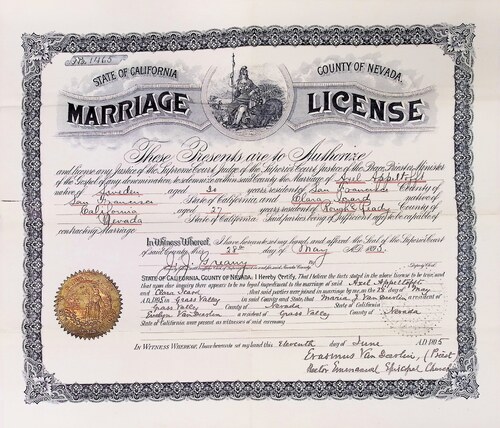 No. 1465
STATE OF CALIFORNIA
COUNTY OF NEVADA.
MARRIAGE LICENSE
These Presents are to Authorize
and license any Justice of the Supreme Court, Judge of the Superior Court, Justice of the Peace, Priest or Minister
of the Gospel of any denomination, to solemnize within said County the Marriage of Axel Appeltofft
native of Sweden aged 30 years resident of San Francisco County of
San Francisco State of California, and Clara Isard native of
California aged 27 years resident of Rough & Ready County of
Nevada State of California. Said parties being of sufficient age to be capable of
contracting Marriage.
In Witness Whereof, I have hereunto set my hand, and affixed the Seal of the Superior Court
of said County, this 28th day of May A.D. 1895
J. J. Greany
Deputy Clerk
STATE OF CALIFORNIA, COUNTY OF NEVADA, I Hereby Certify, That I believe the facts stated in the above license to be true, and
that upon due enquiry there appears to be no legal impediment to the marriage of said Axel Appeltofft
and Clara Isard that said parties were joined in marriage by me on the 28 day of May
A.D. 1895 in Grass Valley in said County and State, that Maria J. VanDeerlin a resident of
Grass Valley County of Nevada State of California and
Evelyn VanDeerlin a resident of Grass Valley County of Nevada
State of California were present as witnesses of said ceremony
IN WITNESS WHEREOF, I have hereunto set my hand this Eleventh day of June A.D. 1895
Erasmus Van Deerlin, (Priest
Rector Emmanuel Episcopal Church